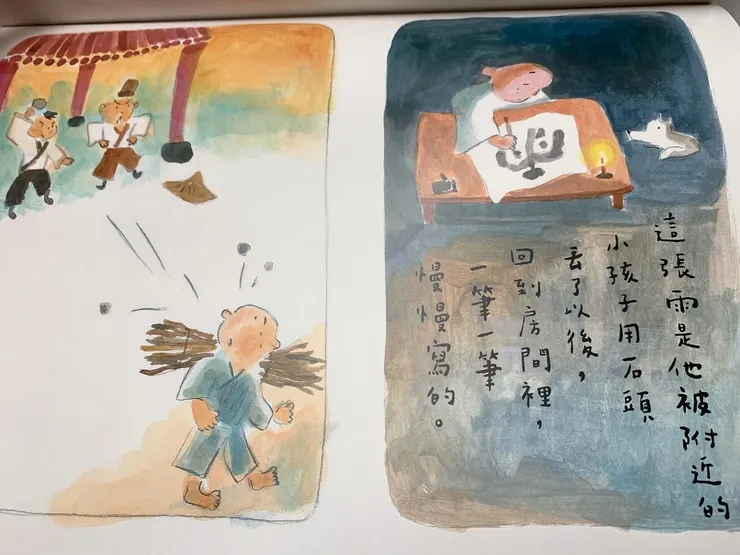 這張雨是他被附近的
小孩子用石頭
丟了以後，
回到房間裡，
一筆一筆
慢慢寫的。